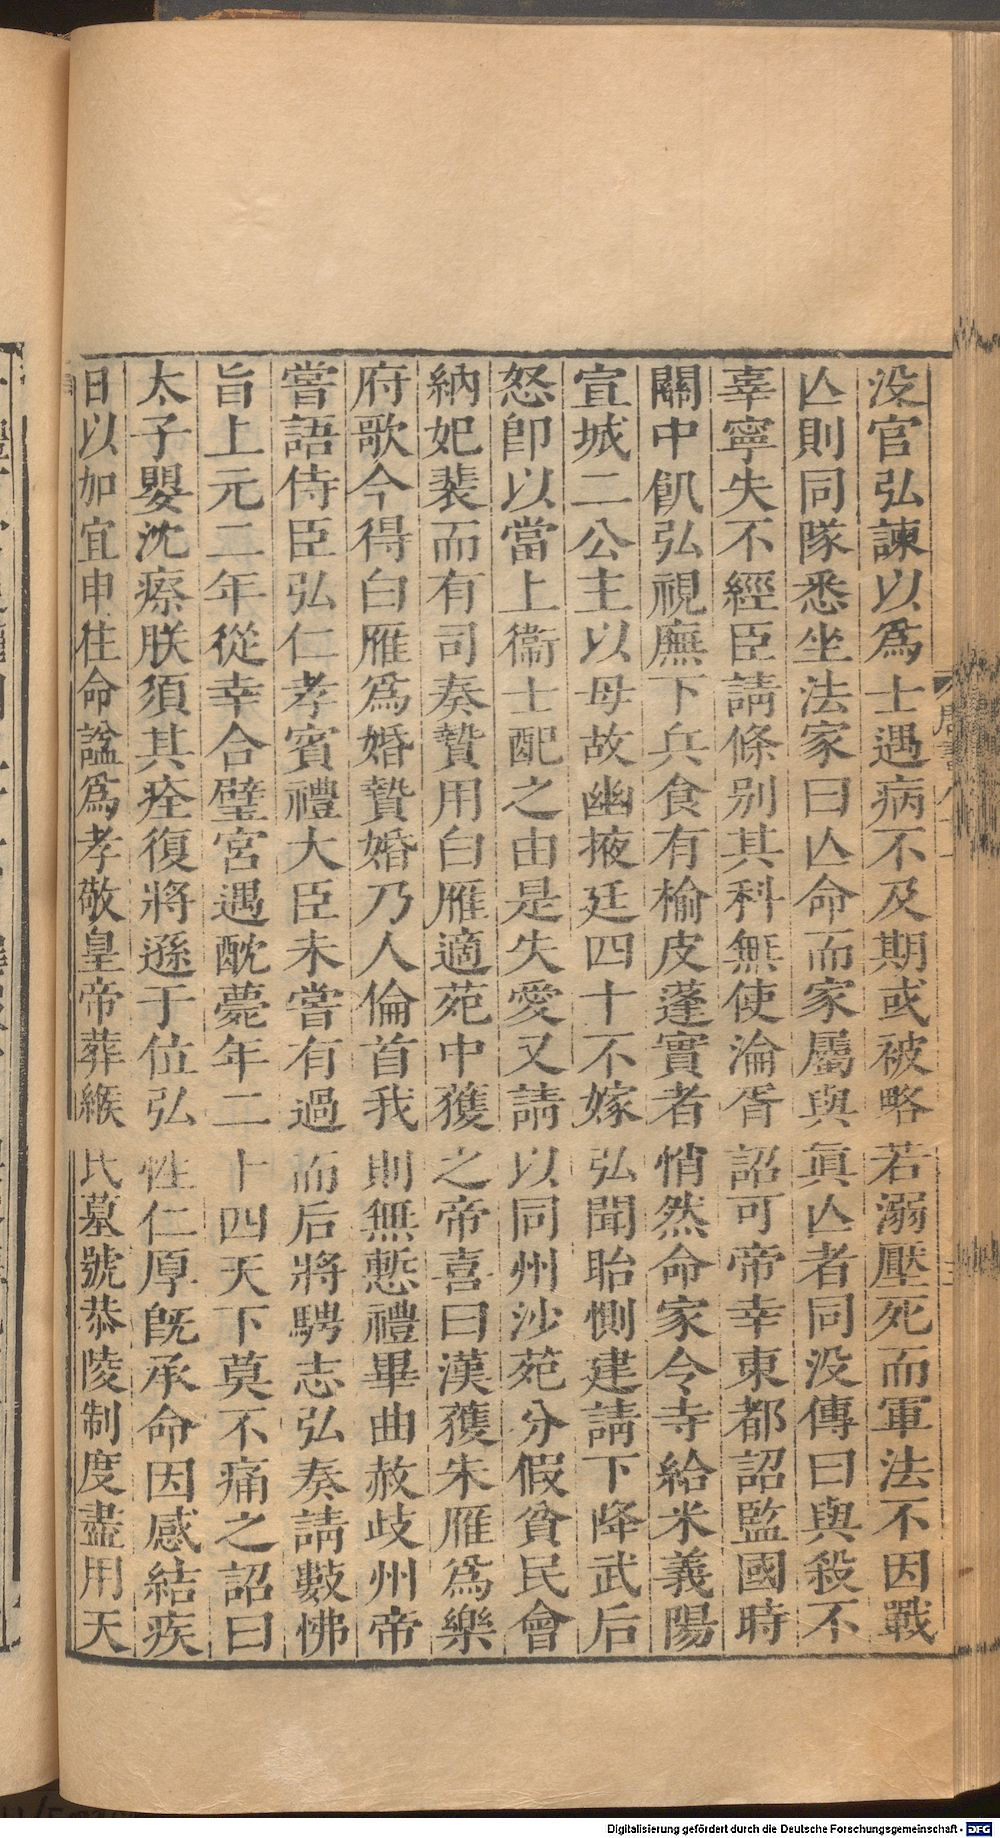 没官弘諫以爲士遇病不及期或被略若溺壓死而軍法不因戰
亾則同隊悉坐法家曰亾命而家屬與眞亾者同没傳曰與殺不
辜寧失不經臣請條别其科無使淪胥詔可帝幸東都詔監國時
關中飢弘視廡下兵食有榆皮蓬實者悄然命家令寺給米義陽
宣城二公主以母故幽掖廷四十不嫁弘聞眙惻建請下降武后
怒卽以當上衞士配之由是失愛又請以同州沙苑分假貧民會
納妃裴而有司奏贄用白雁適苑中獲之帝喜曰漢獲朱雁爲樂
府歌今得白雁爲婚贄婚乃人倫首我則無慙禮畢曲赦歧州帝
嘗語侍臣弘仁孝賓禮大臣未嘗有過而后將騁志弘奏請數怫
旨上元二年從幸合璧宮遇酖薨年二十四天下莫不痛之詔曰
太子嬰沈瘵朕須其痊復將遜于位弘性仁厚旣承命因感結疾
日以加宜申往命諡爲孝敬皇帝葬緱氏墓號恭陵制度盡用天
Digitalisierung gefördert durch die Deutsche Forschungsgemeinschaft - DFG